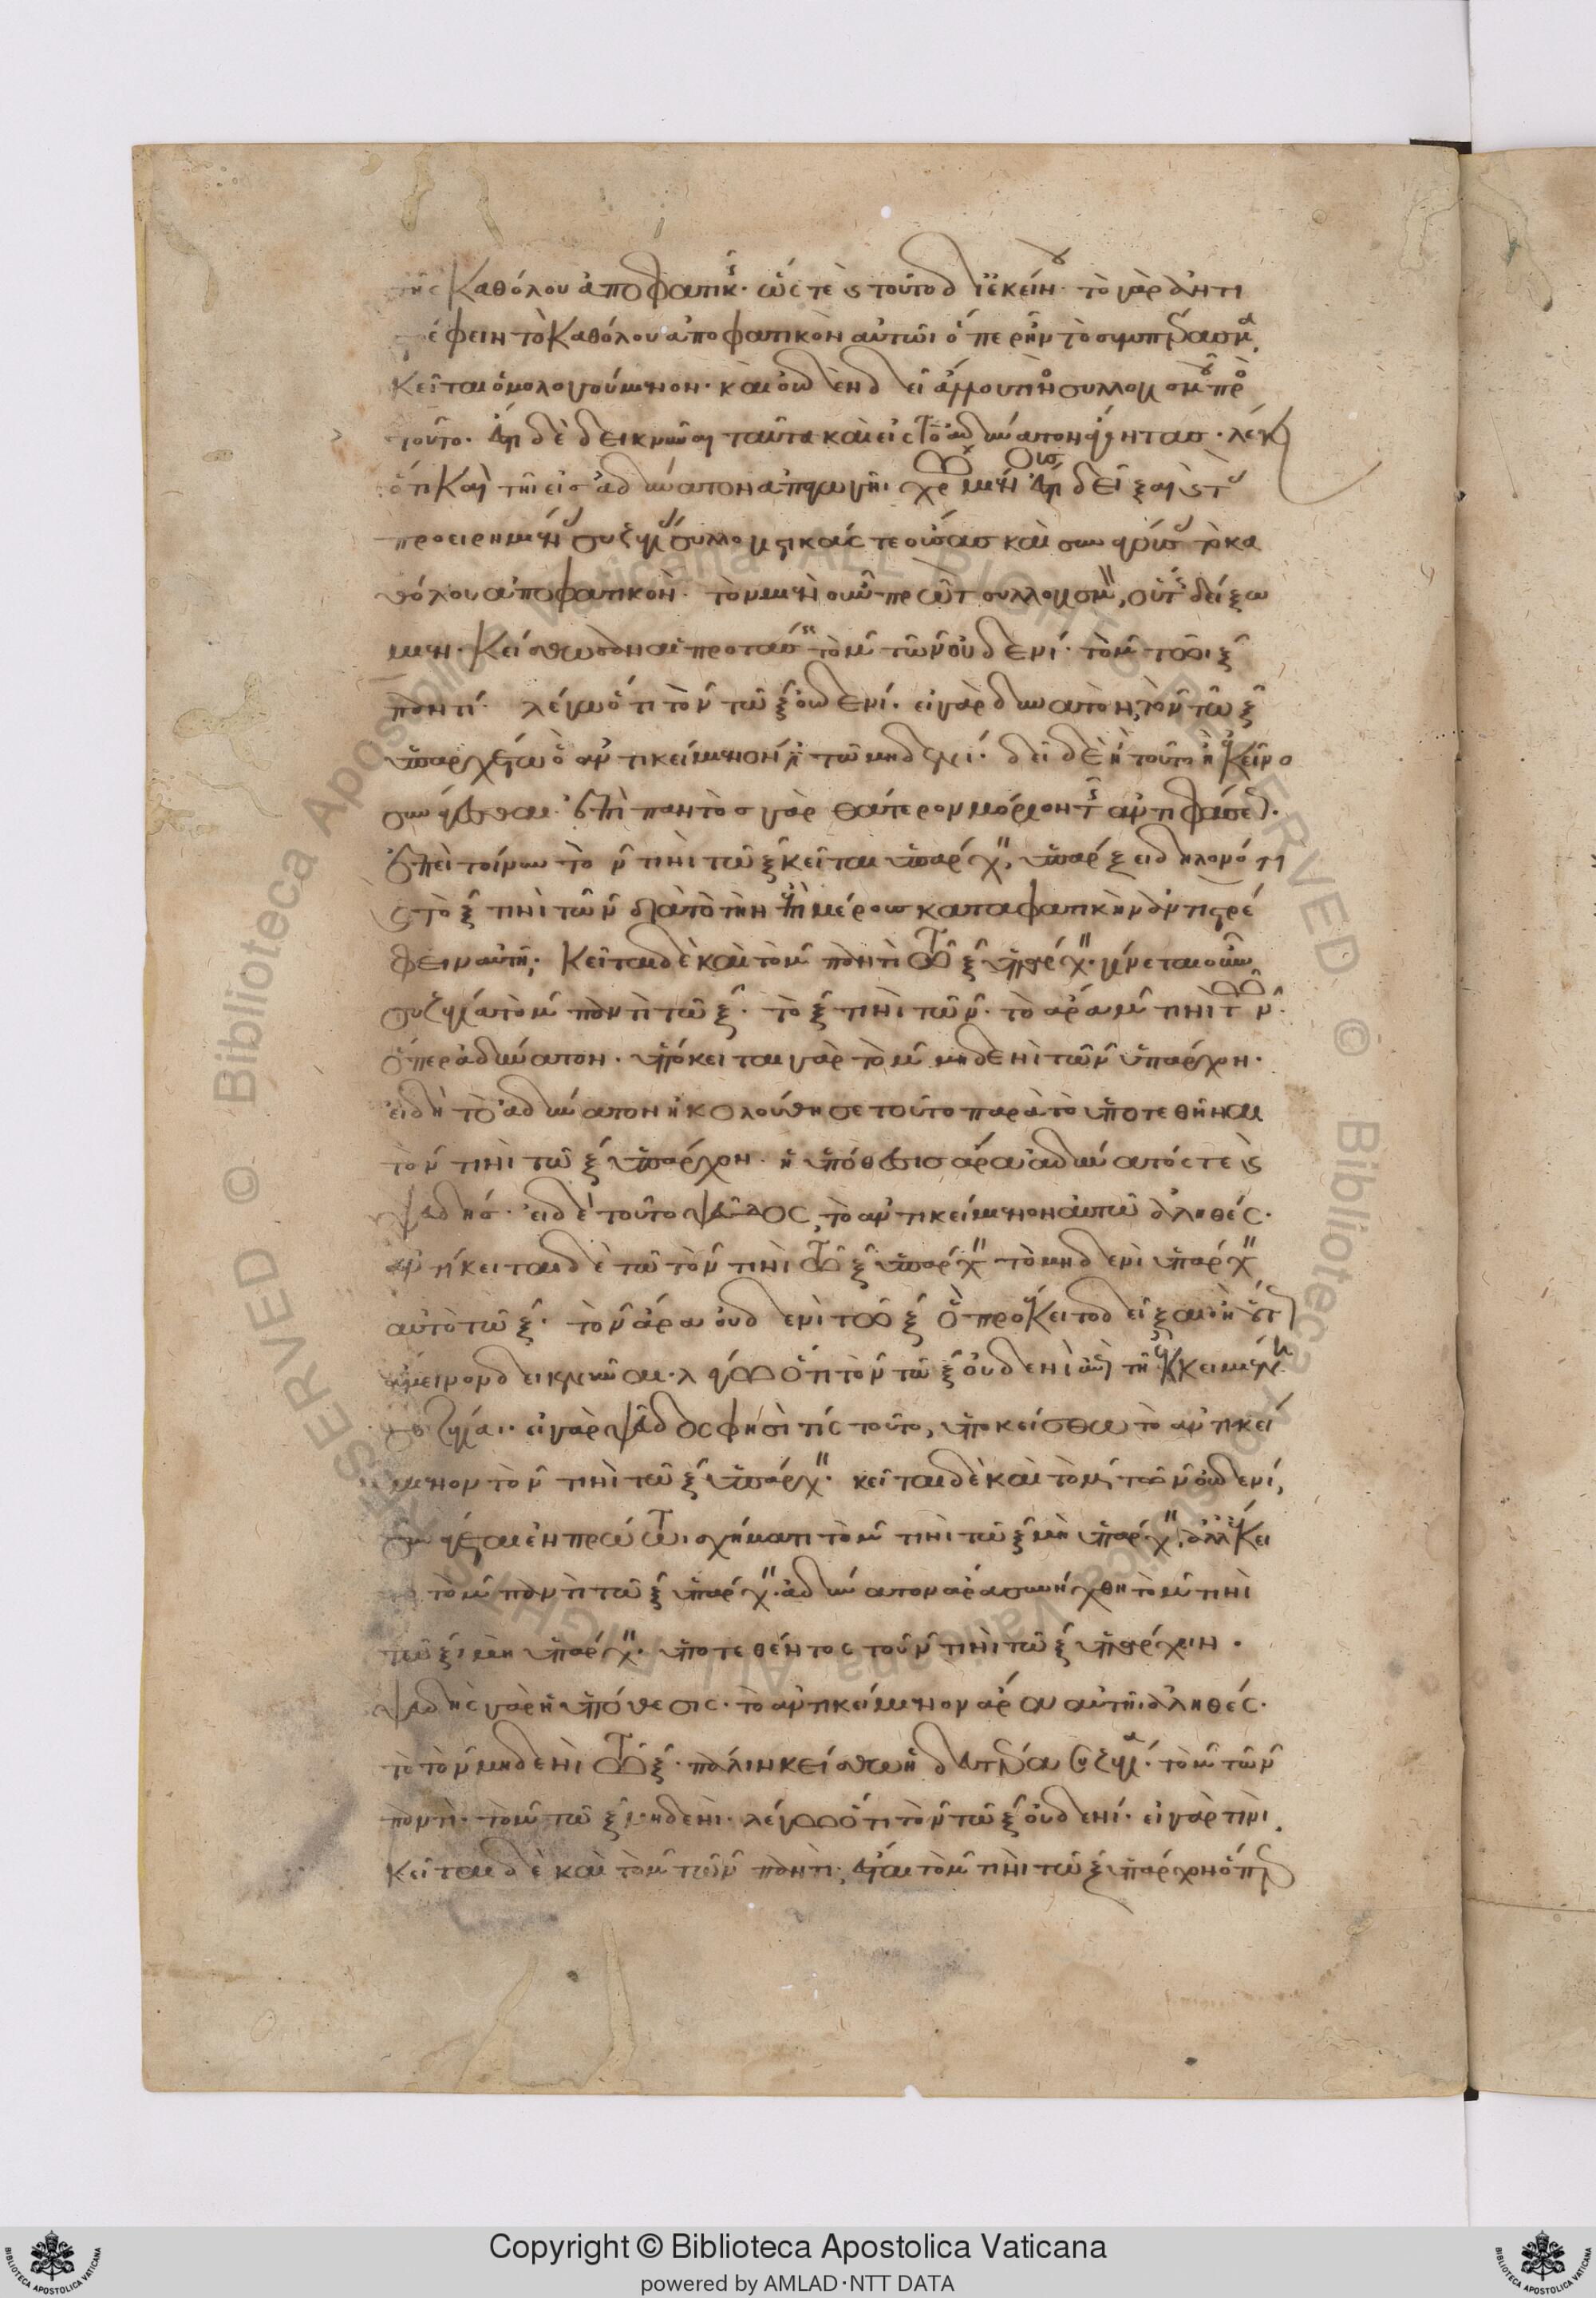 τῆς καθόλου ἀποφατικῆς· ὥστε καὶ τοῦτο δι' ἐκείνου· τὸ γὰρ ἀντι
στρέφειν τὸ καθόλου ἀποφατικὸν αὐτῶι ὅπερ ἦν τὸ συμπέρασμα,
κεῖται ὁμολογούμενον· καὶ οὐδὲν δεῖ ἄλλου τινὸς συλλογισμοῦ πρὸς
τοῦτο· ἔτι δὲ δεικνῦναι ταῦτα καὶ εἰς τὸ ἀδύνατον ἄγοντας· λέγει
ὅτι καὶ τῆι εἰς ἀδύνατον ἀπαγωγῆι χρωμένοις ἔστι δεῖξαι καὶ τὰς
προειρημένας συζυγίας συλλογιστικάς τε οὔσας καὶ συναγούσας τὸ κα
θόλου ἀποφατικόν· τὸν μὲν οὖν πρῶτον συλλογισμὸν, οὕτω δείξο
μεν· κείσθωσαν αἱ προτάσεις τὸ μ τῶ ν οὐδενί· τὸ μ τῶι ξ
παντί· λέγω ὅτι τὸ ν τῶ ξ οὐδενί· εἰ γὰρ δυνατὸν, τὸ ν τῶ ξ
ὑπαρχέτω ὃ ἀντικείμενόν ἐστι τῶ μηδενί· δεῖ δὲ ἢ τοῦτο ἢ κεῖνο
συνάγεσθαι· ἐπὶ παντὸς γὰρ θάτερον μόριον τῆς ἀντιφάσεως·
ἐπεὶ τοίνυν τὸ ν τινὶ τῶ ξ κεῖται ὑπάρχειν, ὑπάρξει δηλονότι
καὶ τὸ ξ τινὶ τῶ ν διὰ τὸ τὴν ἐπὶ μέρους καταφατικὴν ἀντιστρέ
φειν αὐτῆ· κεῖται δὲ καὶ τὸ μ παντὶ τῶ ξ ὑπάρχειν· γίνεται οὖν
συζυγία τὸ μ παντὶ τῶ ξ· τὸ ξ τινὶ τῶ ν· τὸ ἄρα μ τινὶ τῶ ν·
ὅπερ ἀδύνατον· ὑπόκειται γὰρ τὸ μ μηδενὶ τῶ ν ὑπάρχειν·
εἰ δὴ τὸ ἀδύνατον ἠκολούθησε τοῦτο παρὰ τὸ ὑποτεθῆναι
τὸ ν τινὶ τῶ ξ ὑπάρχειν· ἡ ὑπόθεσις ἄρα ἀδύνατός τε καὶ
ψευδής· εἰ δὲ τοῦτο ψεῦδος, τὸ ἀντικείμενον αὐτῶ ἀληθές·
ἀντίκειται δὲ τῶ τὸ ν τινὶ τῶ ξ ὑπάρχειν τὸ μηδενὶ ὑπάρχειν
αὐτὸ τῶ ξ· τὸ ν ἄρα οὐδενὶ τῶ ξ ὃ προέκειτο δεῖξαι
ἄμεινον δεικνῦναι· λέγω ὅτι τὸ ν τῶ ξ οὐδενὶ
συζυγία· εἰ γὰρ ψεῦδος φησὶ τίς τοῦτο, ὑποκείσθω τὸ ἀντικεί
μενον τὸ ν τινὶ τῶ ξ ὑπάρχειν· κεῖται δὲ καὶ τὸ μ τῶ ν οὐδενί,
συνάγεται ἐν πρώτωι σχήματι τὸ μ τινὶ τῶ ξ μὴ ὑπάρχειν, ἀλλ' ἔκει
το τὸ μ παντὶ τῶ ξ ὑπάρχειν· ἀδύνατον ἄρα συνήχθη τὸ μ τινὶ
τῶ ξ μὴ ὑπάρχειν· ὑποτεθέντος τοῦ ν τινὶ τῶ ξ ὑπάρχειν·
ψευδὴς γὰρ ἡ ὑπόθεσις· τὸ ἀντικείμενον ἄρα αὐτῆι ἀληθές·
τὸ τὸ ν μηδενὶ τῶ ξ· πάλιν κείσθω ἡ δευτέρα συζυγία· τὸ μ τῶ ν
παντὶ· τὸ μ τῶ ξ μηδενὶ· λέγω ὅτι τὸ ν τῶ ξ οὐδενί· εἰ γὰρ τινὶ,
κεῖται δὲ καὶ τὸ μ τῶ ν παντὶ, ἔσται τὸ μ τινὶ τῶ ξ ὑπάρχον ὅπερ
Copyright © Biblioteca Apostolica Vaticana
powered by AMLAD·NTT DATA